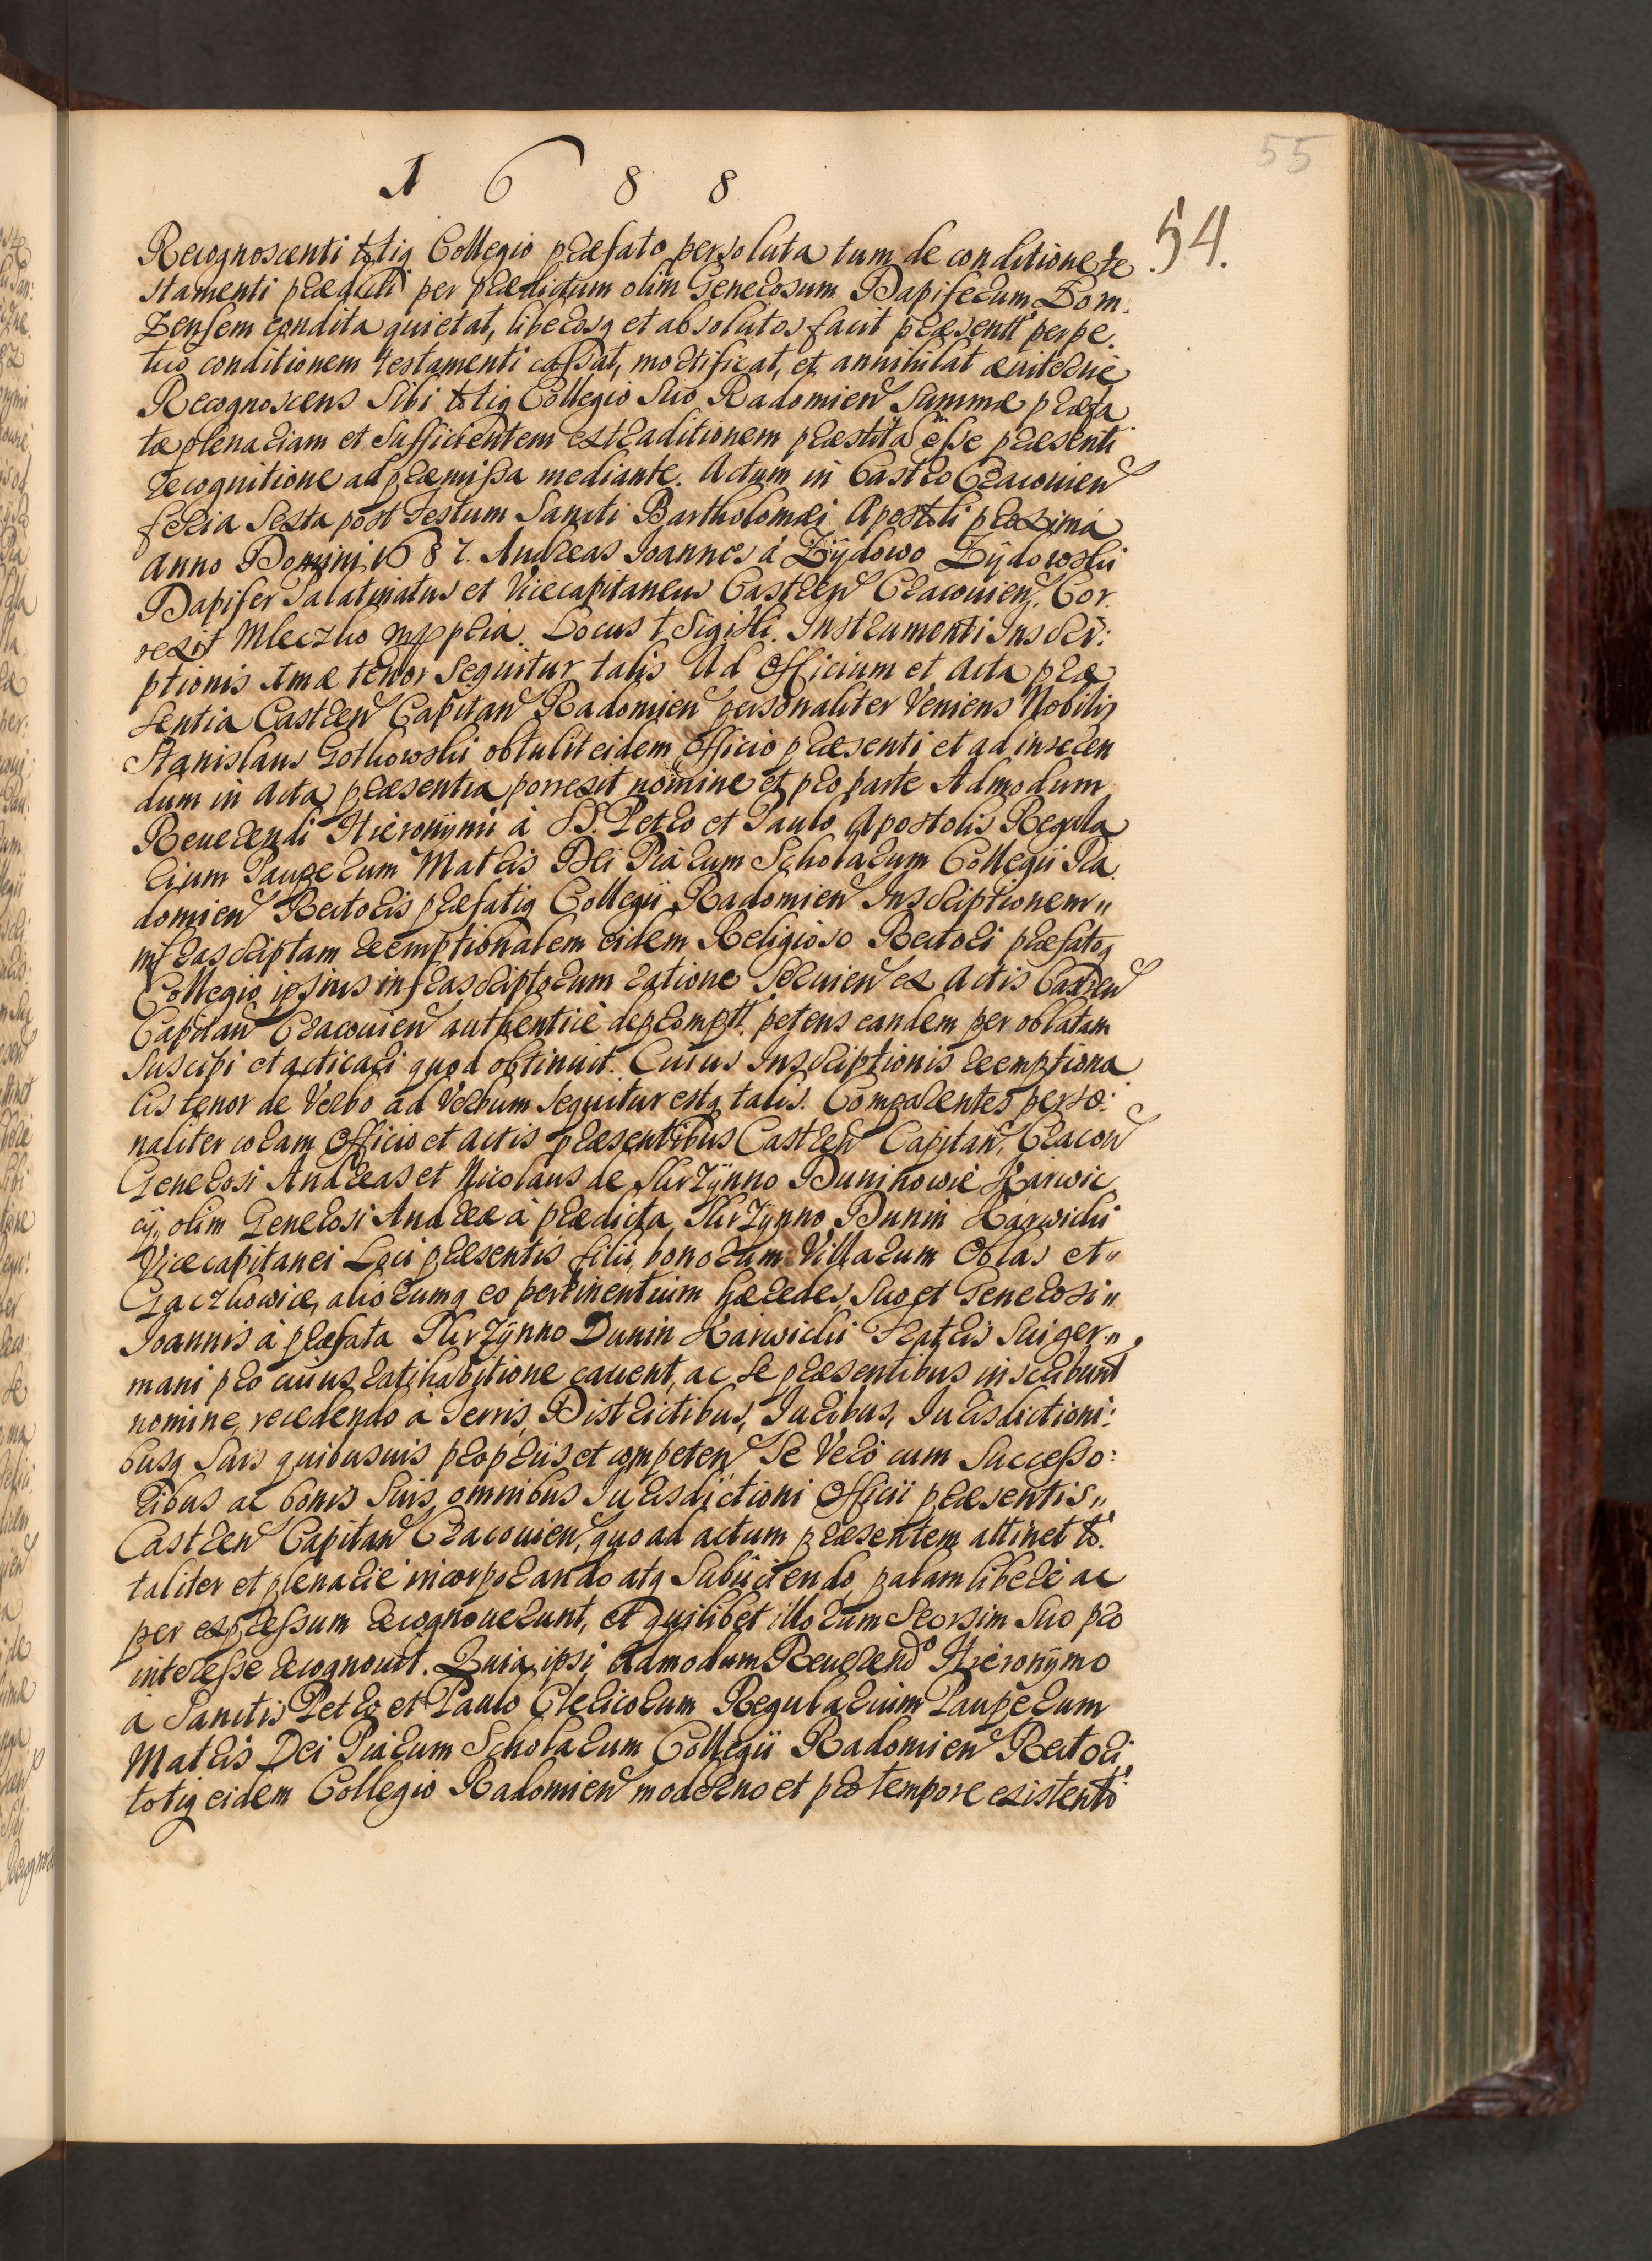 1688
55
54.
Recognoscenti totiq Collegio præfato persoluta tum de conditione te
stamenti prædicti per prædictum olim Generosum Dapiferum Lom.
Zensem condita quietat, liberosq et absolutos facit præsentt perpe.
tuo conditionem testamenti cassat, mortificat, et annihilat æviterne
Recognoscens Sibi totiq Collegio Suo Radomien Summæ præfa
tæ plenariam et Sufficientem extraditionem præstita esse præsenti
recognitione ad præmissa mediante. Actum in Castro Cracovien
feria Sexta post Festum Sancti Bartholomæi Apostoli proxima
Anno Domini 1687. Andreas Joannes à Zÿdowo Zÿdowski
Dapifer Palatinatus et Vicecapitaneus Castren Cracovien. Cor.
rexit Mleczko mpp pria. Locus t Sigilli. Instrumenti Inscri:
ptionis Amæ tenor Sequitur talis Ad Officium et Acta præ
sentia Castren Capitan Radomien personaliter Veniens Nobilis
Stanislaus Gotkowski obtulit eidem Officio præsenti et ad inseren
dum in Acta præsentia porrexit nomine et pro parte Admodum
Reverendi Hieronÿmi à S.S. Petro et Paulo Apostolis Regula
rium Pauperum Matris Dei Piarum Scholarum Collegii Ra
domien Rectoris præfatiq Collegii Radomien Inscriptionem
infrascriptam reemptionalem eidem Religioso Rectori præfatoq
Collegio ipsius infrascriptorum ratione Servien ex Actis Castren
Capitan Cracovien authenticè depromptt. petens eandem per oblatam
Suscipi et acticari quod obtinuit. Cuius Inscriptionis reemptiona
lis tenor de Verbo ad Verbum Sequitur estq talis. Comparentes perso:
naliter coram Officio et Actis præsentibus Castren Capitan, Cracov
Generosi Andreas et Nicolaus de Skrzÿnno Duninowie Karwic
cÿ, olim Generosi Andreæ à prædicta Skrzÿnno Dunin Karwicki
Vicecapitanei Loci præsentis filii, bonorum Villarum Oblas et
Gaczkowice, aliorumq eo pertinentium hæredes, Suo et Generosi
Joannis à præfata Skrzÿnno Dunin Karwicki Fratris Sui ger
mani pro cuius ratihabitione cavent, ac Se præsentibus inscribunt
nomine, recedendo à Terris, Districtibus, Juribus, Jurisdictioni:
busq Suis quibusvis propriis et competen Se Verò cum Successo:
ribus ac bonis Suis omnibus Jurisdictioni Officii præsentis
Castren Capitan Cracovien, quo ad actum præsentem attinet to.
taliter et plenarie incorporando atq Subiiciendo, palam liberè ac
per expressum recognoverunt, et quilibet illorum Seorsim Suo pro
interesse recognovit. Quia ipsi Admodum Reverendo Hieronÿmo
à Sanctis Petro et Paulo Clericorum Regularium Pauperum
Matris Dei Piarum Scholarum Collegii Radomien Rectori,
totiq eidem Collegio Radomien moderno et pro tempore existento